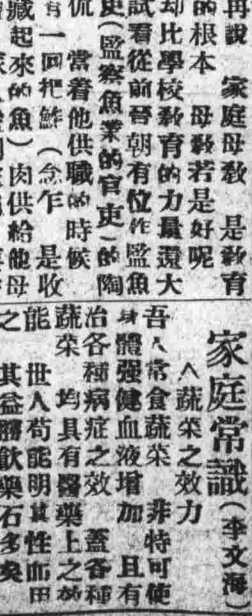 再說 家庭母敎 是敎育
的根本 母敎若是好呢
却比學校敎育的力量還大
試看從前晉朝有位作監魚
吏(監察魚業的官吏)的陶
侃 當着他供職的時候
有一回把鮓(念乍 是收
藏起來的魚)肉供給他母
家庭常識(李文海)
人蔬菜之效力
吾人常食蔬菜 非特可使
身體强健血液增加 且有
治各種病症之效 蓋各種
蔬菜 均具有醫藥上之効
能 世人苟能明其性而用
之 其益勝飮藥石多矣